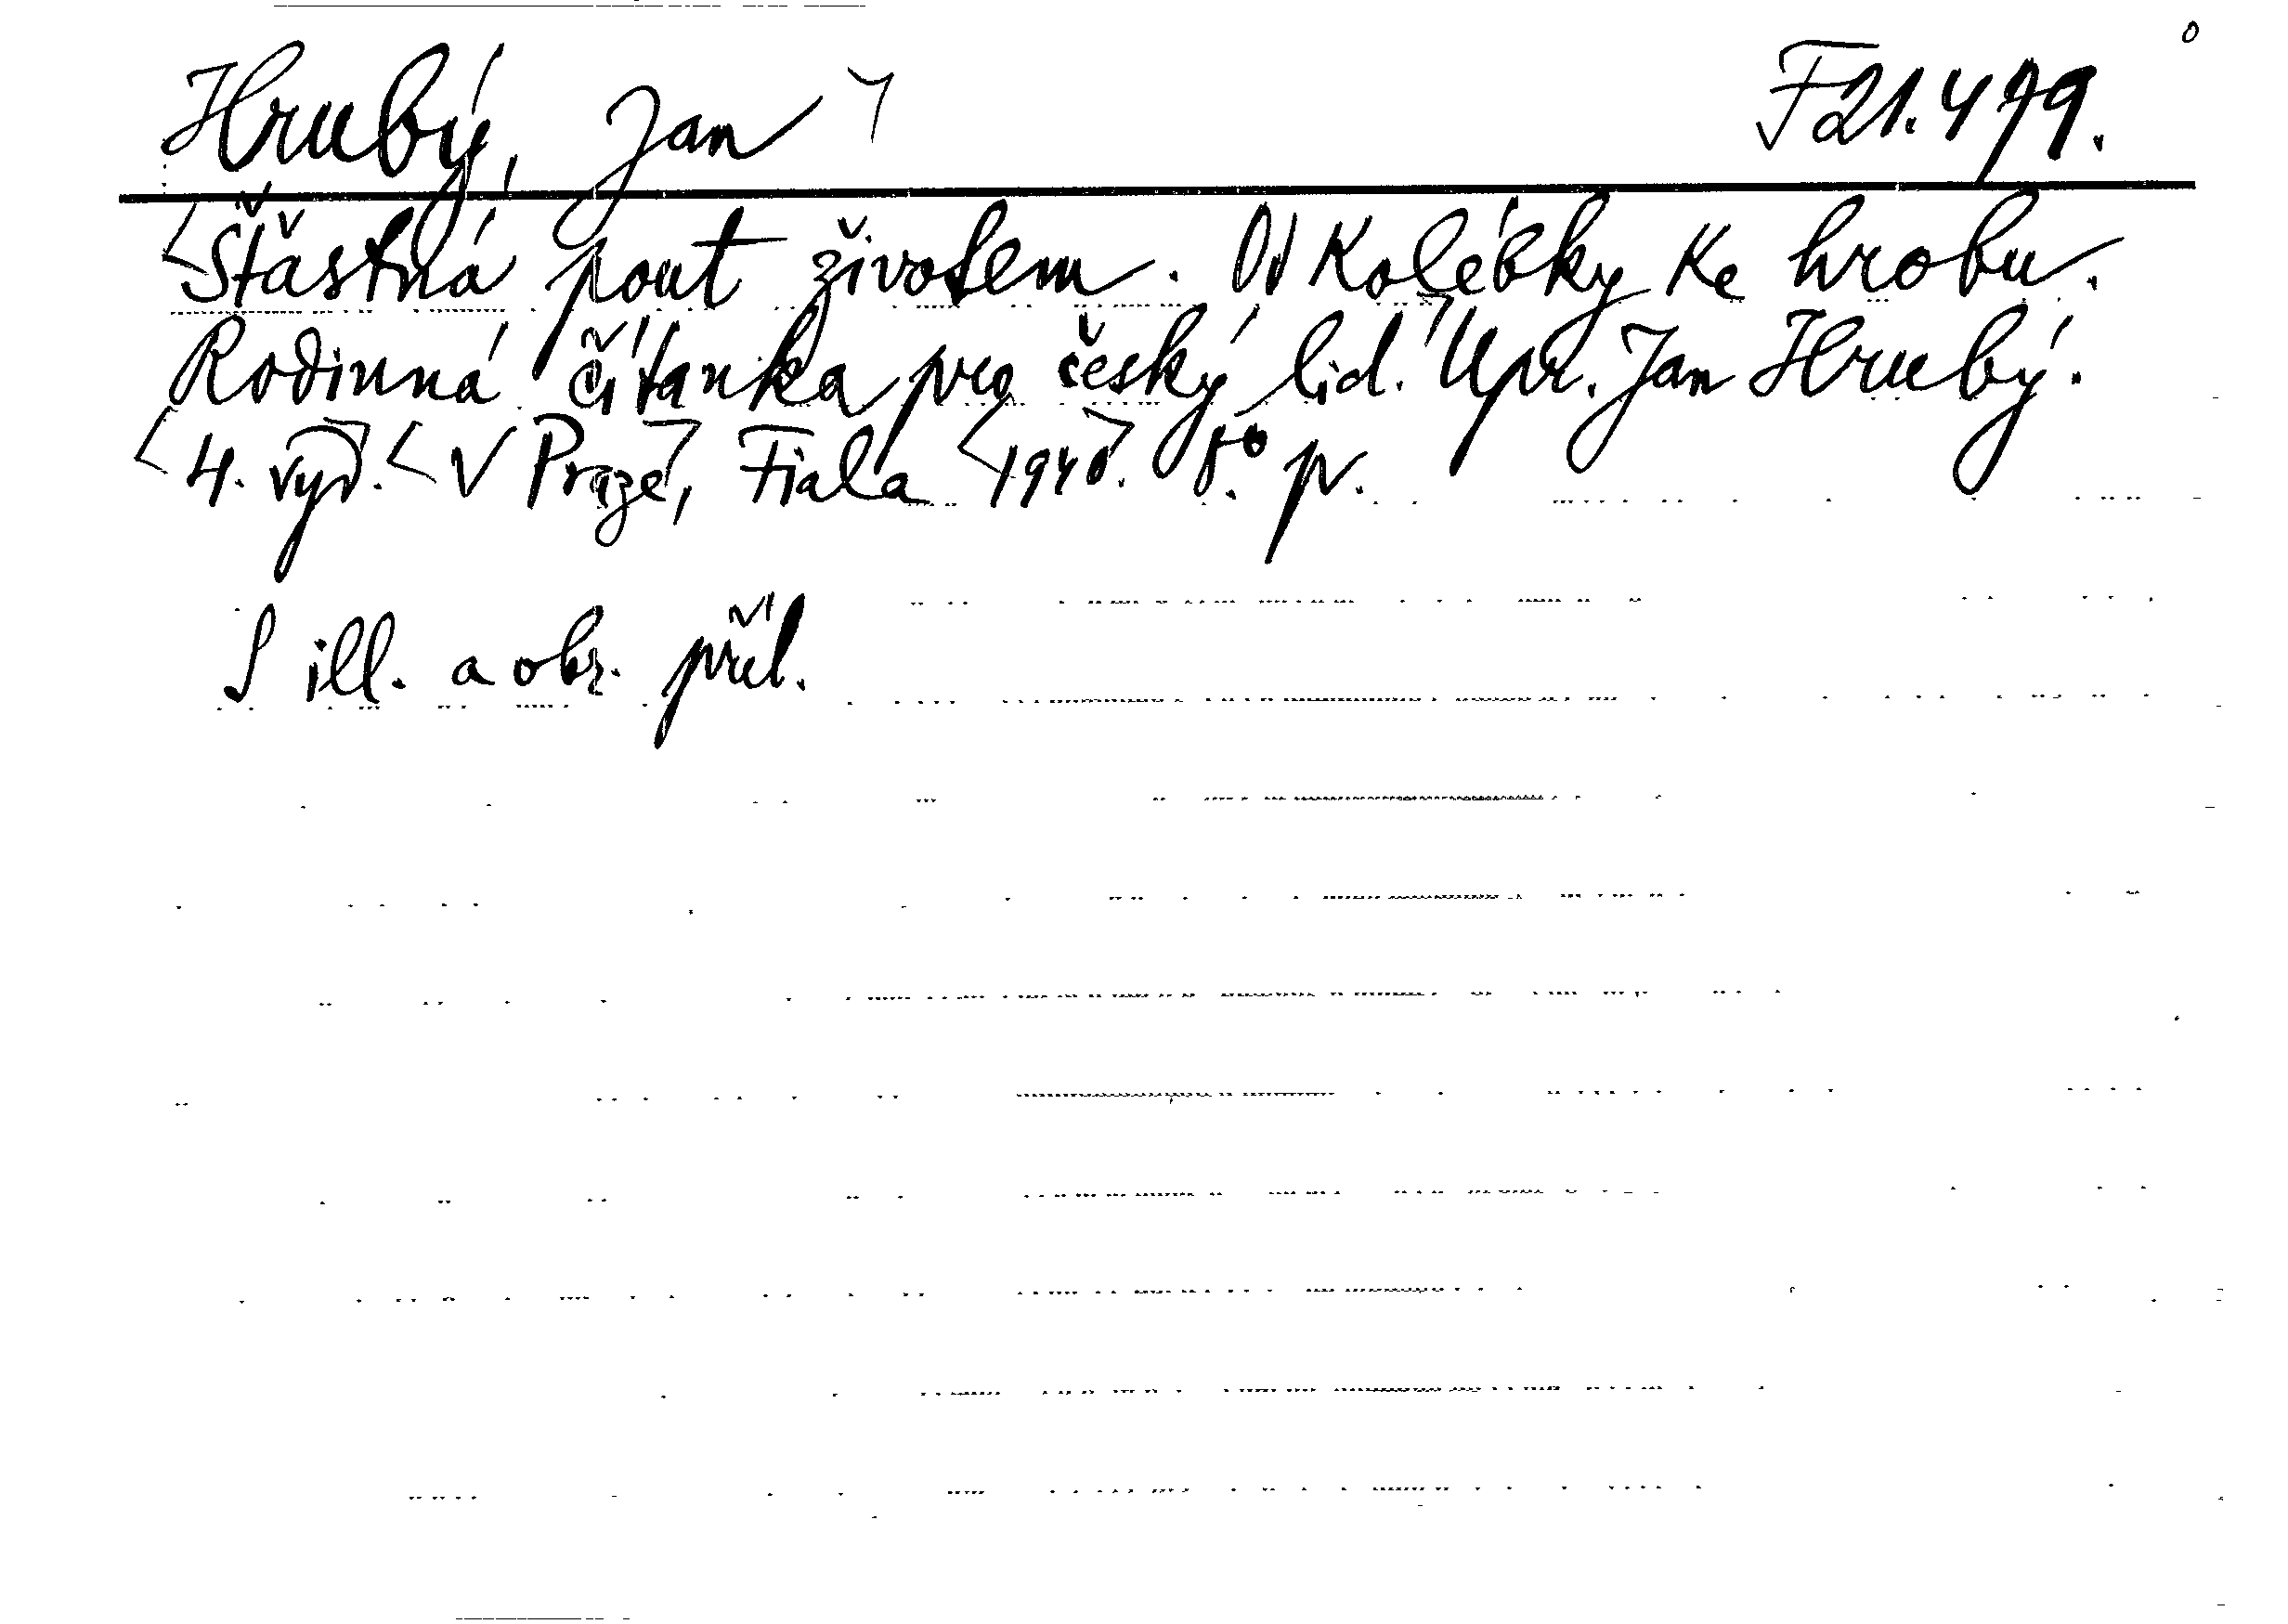 Hrubý, Jan F 21.479.
Šťastná pout životem. Od Kolébky Ke hrobu.
Rodinná čítanka pro český lid. Upr. Jan Hrubý.
4. vyd. V Praze, Fiala 1940. 8° p.
S ill. a obr. příl.